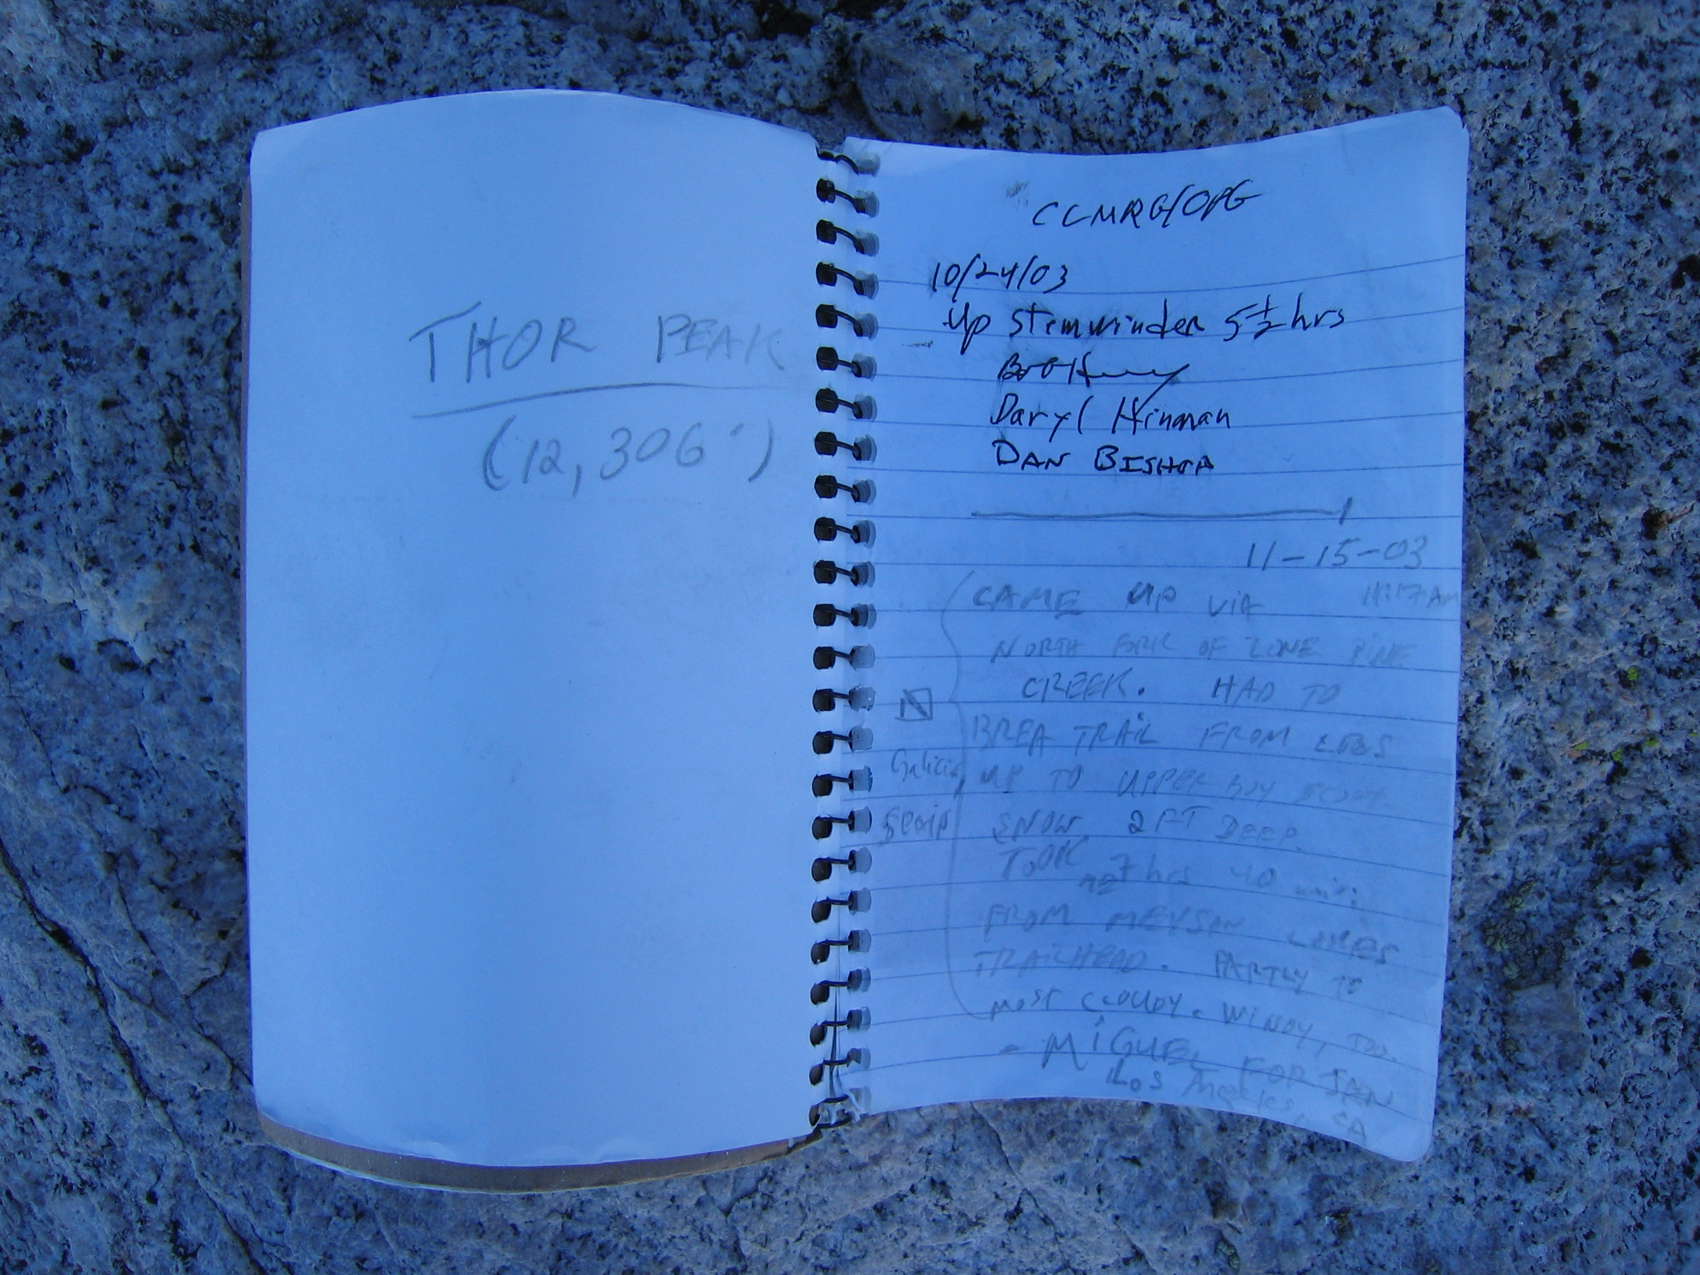 THOR PEAK
(12,306')
CCMRG/OPG
10/24/03
Up Stemwinder 5 1/2 hrs
Daryl Hinman
DAN BISHOP
11-15-03
CAME UP VIA 11:17AM
NORTH FORK OF LONE PINE
CREEK. HAD TO
BREA TRAIL FROM LBSL
UP TO UPPER BOY SCOUT.
SNOW 2 FT DEEP.
TOOK 7 hrs 40 min.
FROM MEYSAN LAKES
TRAILHEAD. PARTLY TO
MOST CLOUDY. WINDY, TOO.
- MIGUEL FORJAN
Los Angeles, CA
Galicia,
Spain